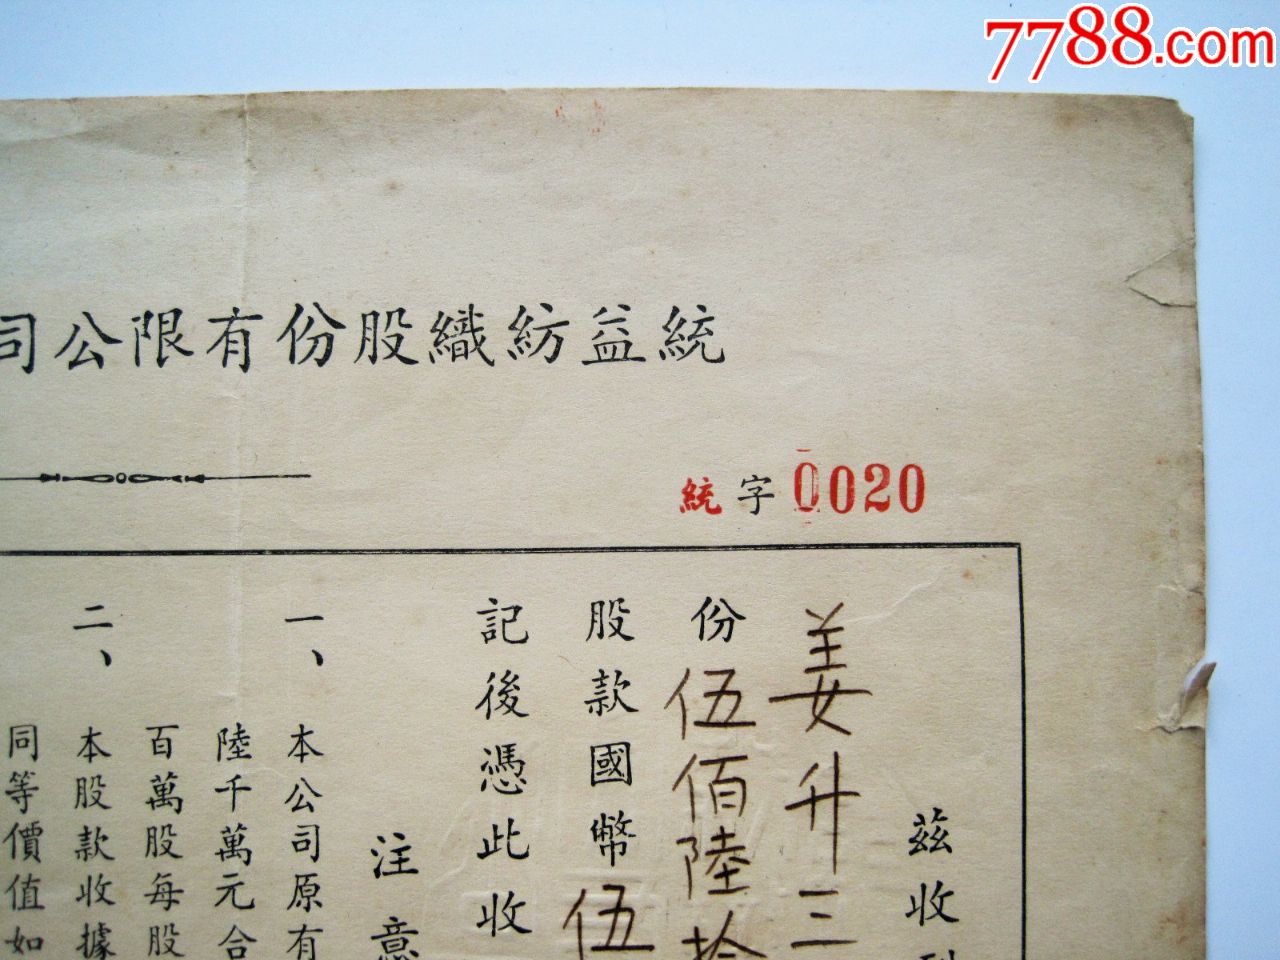 7788.com
統益紡織股份有限公司
統字0020
茲收
姜升三
份伍佰陸拾
股款國幣伍
記後憑此收
注意
一、本公司原有
陸千萬元合
百萬股每股
二、本股款收據
同等價值如